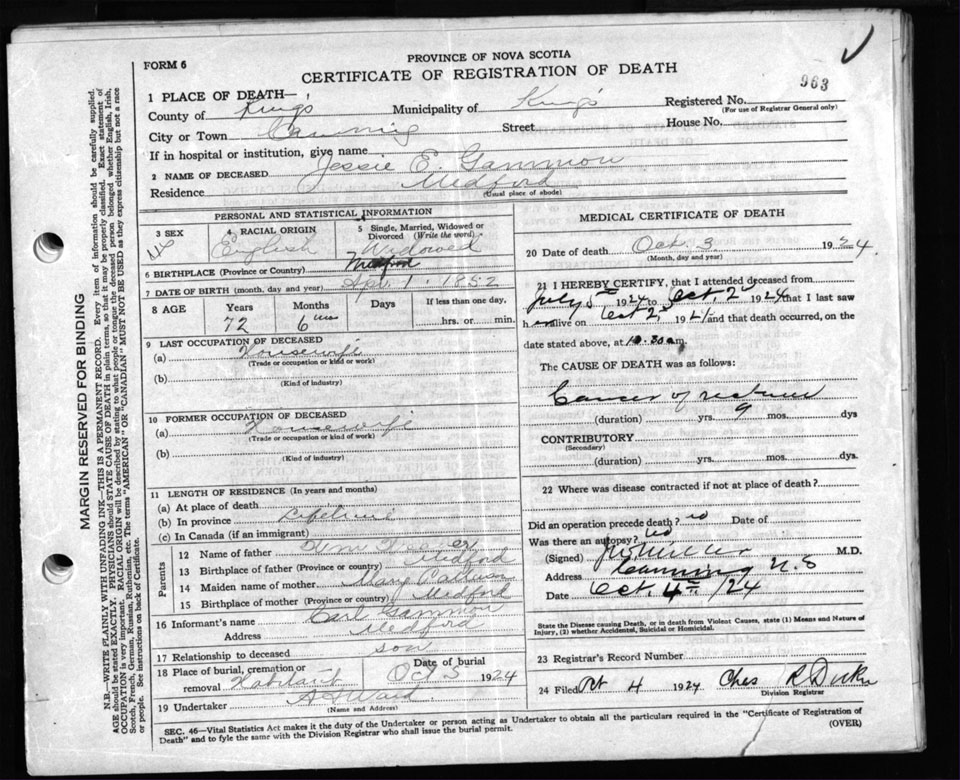 FORM 6
PROVINCE OF NOVA SCOTIA
CERTIFICATE OF REGISTRATION OF DEATH
963
1 PLACE OF DEATH—
County of King's Municipality of King's Registered No.
(For use of Registrar General only)
City or Town Canning Street House No.
If in hospital or institution, give name
2 NAME OF DECEASED Jessie E. Gammon
Residence Medford
(Usual place of abode)
PERSONAL AND STATISTICAL INFORMATION
3 SEX
4 RACIAL ORIGIN English
5 Single, Married, Widowed or Divorced (Write the word) Widowed
6 BIRTHPLACE (Province or Country) Medford
7 DATE OF BIRTH (month, day and year) Apr 1. 1852
8 AGE Years Months Days If less than one day,
72 6 mos hrs. or min.
9 LAST OCCUPATION OF DECEASED
(a) Housewife
(Trade or occupation or kind or work)
(b)
(Kind of industry)
10 FORMER OCCUPATION OF DECEASED
(a) Housewife
(Trade or occupation or kind of work)
(b)
(Kind of industry)
11 LENGTH OF RESIDENCE (In years and months)
(a) At place of death
(b) In province Lifetime
(c) In Canada (if an immigrant)
Parents
12 Name of father Wm
13 Birthplace of father (Province or country) Medford
14 Maiden name of mother Mary
15 Birthplace of mother (Province or country) Medford
16 Informant's name Carl Gammon
Address Medford
17 Relationship to deceased son
18 Place of burial, cremation or removal Habitant Date of burial Oct 5 1924
19 Undertaker Ward
(Name and Address)
MEDICAL CERTIFICATE OF DEATH
20 Date of death Oct. 3 1924
(Month, day and year)
21 I HEREBY CERTIFY, that I attended deceased from
July 5th 1924 to Oct. 2d 1924 that I last saw
h alive on Oct 2d 1924 and that death occurred, on the
date stated above, at .30 a m.
The CAUSE OF DEATH was as follows:
Cancer of rectum
(duration) yrs. 9 mos. dys
CONTRIBUTORY
(Secondary)
(duration) yrs. mos. dys.
22 Where was disease contracted if not at place of death?
Did an operation precede death? no Date of
Was there an autopsy? no
(Signed) Miller M.D.
Address Canning N.S
Date Oct. 4th /24
State the Disease causing Death, or in death from Violent Causes, state (1) Means and Nature of
Injury, (2) whether Accidental, Suicidal or Homicidal.
23 Registrar's Record Number
24 Filed Oct 4 1924 Chas R
Division Registrar
SEC. 46—Vital Statistics Act makes it the duty of the Undertaker or person acting as Undertaker to obtain all the particulars required in the "Certificate of Registration of
Death" and to fyle the same with the Division Registrar who shall issue the burial permit.
(OVER)
MARGIN RESERVED FOR BINDING
N.B.—WRITE PLAINLY WITH UNFADING INK—THIS IS A PERMANENT RECORD. Every item of information should be carefully supplied.
AGE should be stated EXACTLY. PHYSICIANS should STATE CAUSE OF DEATH in plain terms, so that it may be properly classified. Exact statement of
OCCUPATION is very important. RACIAL ORIGIN will be described by stating to what people or tongue the deceased person belonged whether English, Irish,
Scotch, French, German, Russian, Ruthenian, etc. The terms "AMERICAN" OR "CANADIAN" MUST NOT BE USED as they express citizenship but not a race
or people. See instructions on back of Certificate.